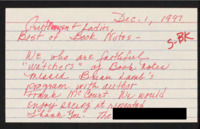 Dec. 1, 1997
Gentlemen & Ladies,
S-BK
Best of Book Notes -
We, who are faithful
"watchers" of Book notes
missed Brian Lamb's
program with author
Frank McCourt. We would
enjoy seeing it repeated
Thank you. The